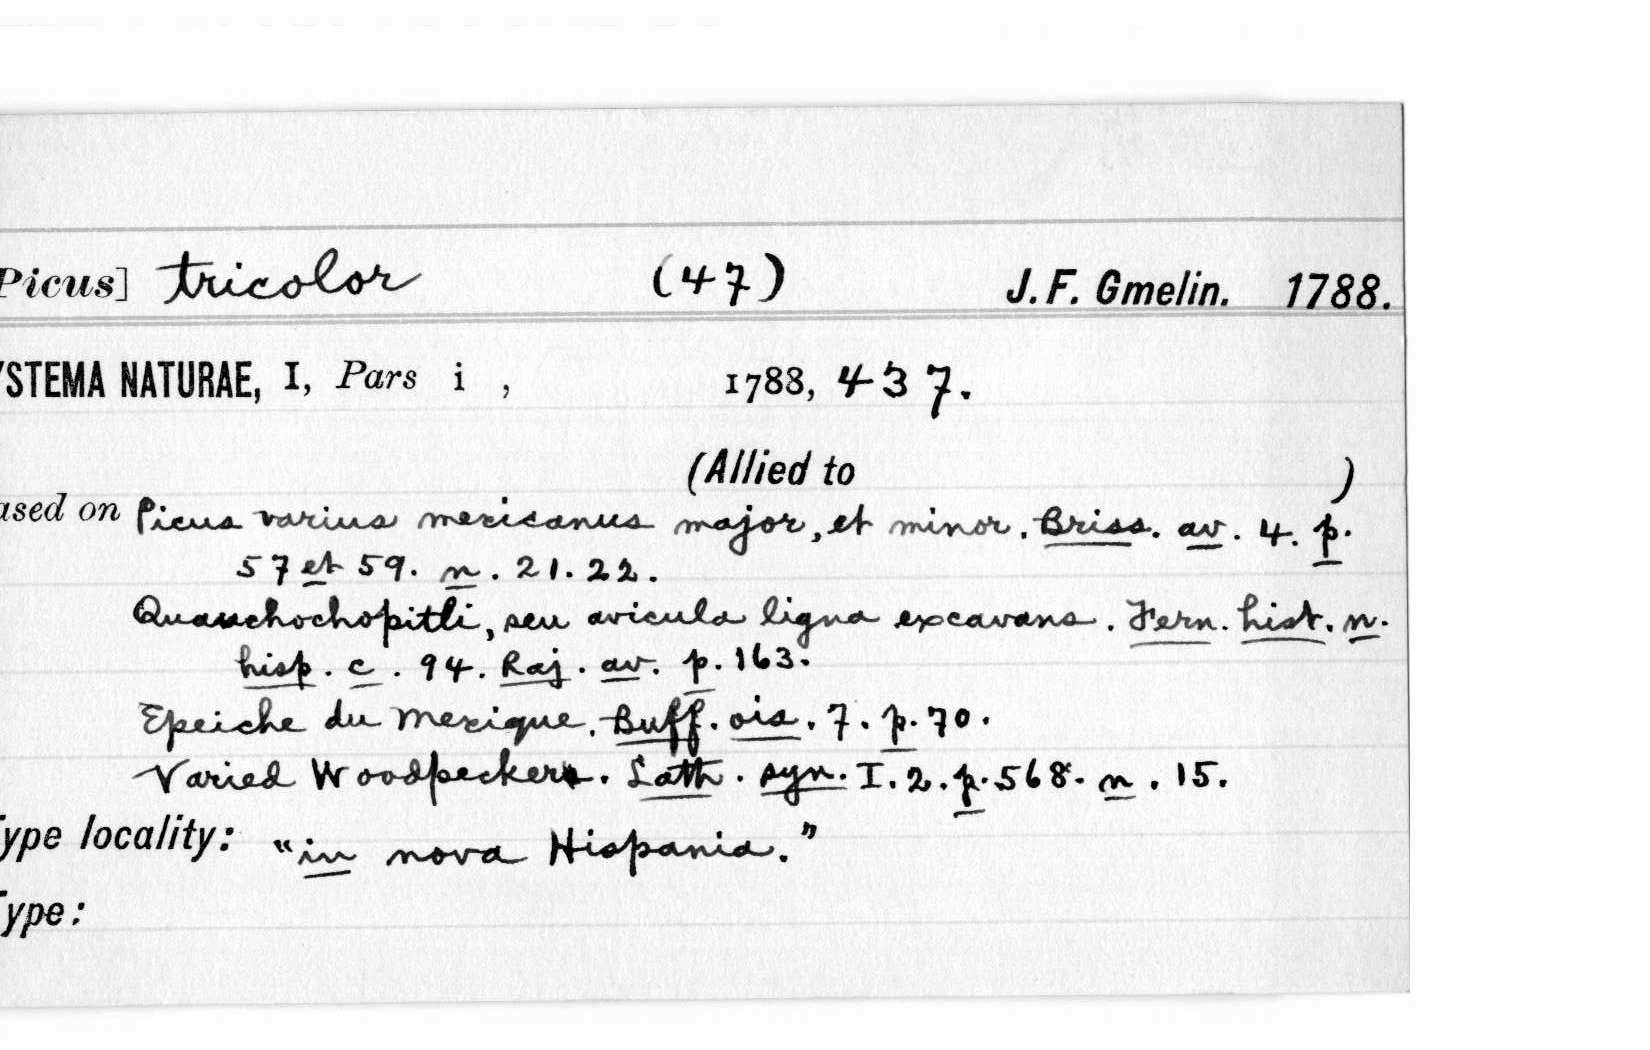 Picus] tricolor (47) J. F. Gmelin. 1788.
YSTEMA NATURAE, I, Pars i , 1788, 437.
(Allied to )
ased on Picus varius mexicanus major, et minor. Briss. av. 4. p.
57 et 59. n. 21. 22.
Quauchochopitli, seu avicula ligna excavans. Fern. hist. n.
hisp. c. 94. Raj. av. p. 163.
Epeiche du Mexique. Buff. ois. 7. p. 70.
Varied Woodpecker. Lath. syn. I. 2. p. 568. n. 15.
Type locality: "in nova Hispania."
Type: